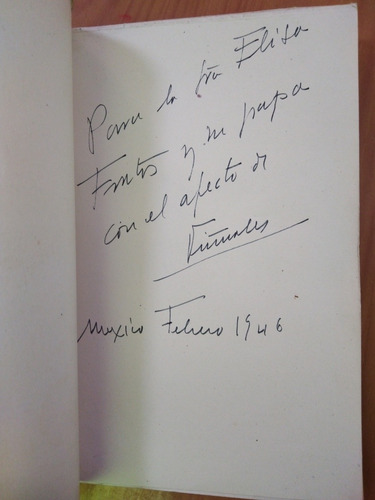 Para la Sra Elisa
Frutos y su papa
con el afecto de
Viñuales
Mexico Febrero 1946